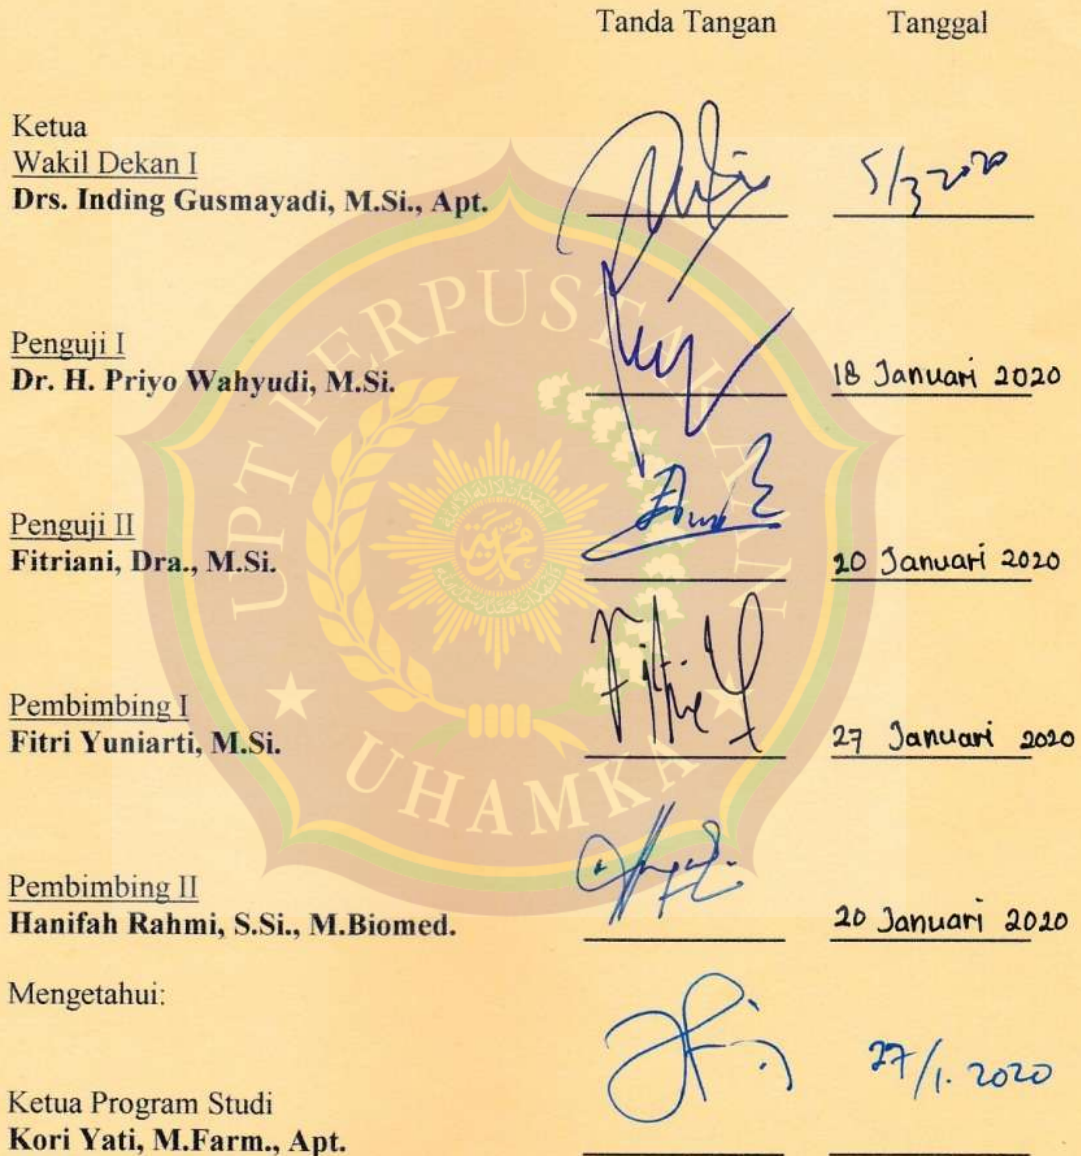 Tanda Tangan Tanggal
Ketua
Wakil Dekan I
Drs. Inding Gusmayadi, M.Si., Apt. 5/3 2020
Penguji I
Dr. H. Priyo Wahyudi, M.Si. 18 Januari 2020
Penguji II
Fitriani, Dra., M.Si. 20 Januari 2020
Pembimbing I
Fitri Yuniarti, M.Si. 27 Januari 2020
Pembimbing II
Hanifah Rahmi, S.Si., M.Biomed. 20 Januari 2020
Mengetahui:
Ketua Program Studi
Kori Yati, M.Farm., Apt. 27/1. 2020
UPT PERPUSTAKAAN
UHAMKA